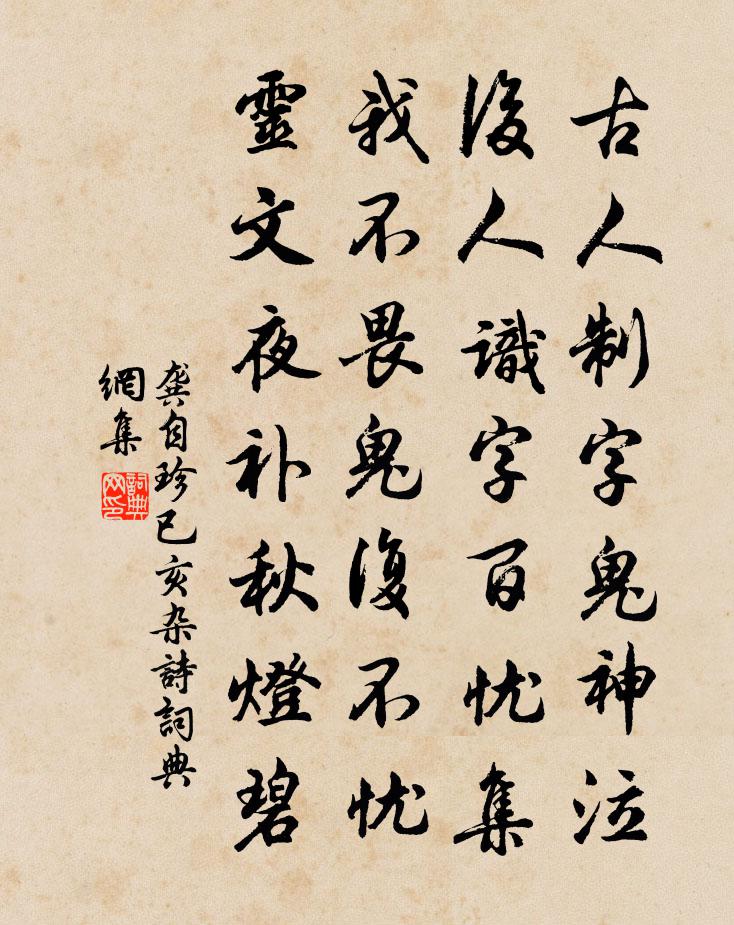 古人制字鬼神泣
後人識字百忧集
我不畏鬼復不忧
靈文夜补秋燈碧
龚自珍已亥杂詩詞典
網集
詞典网印